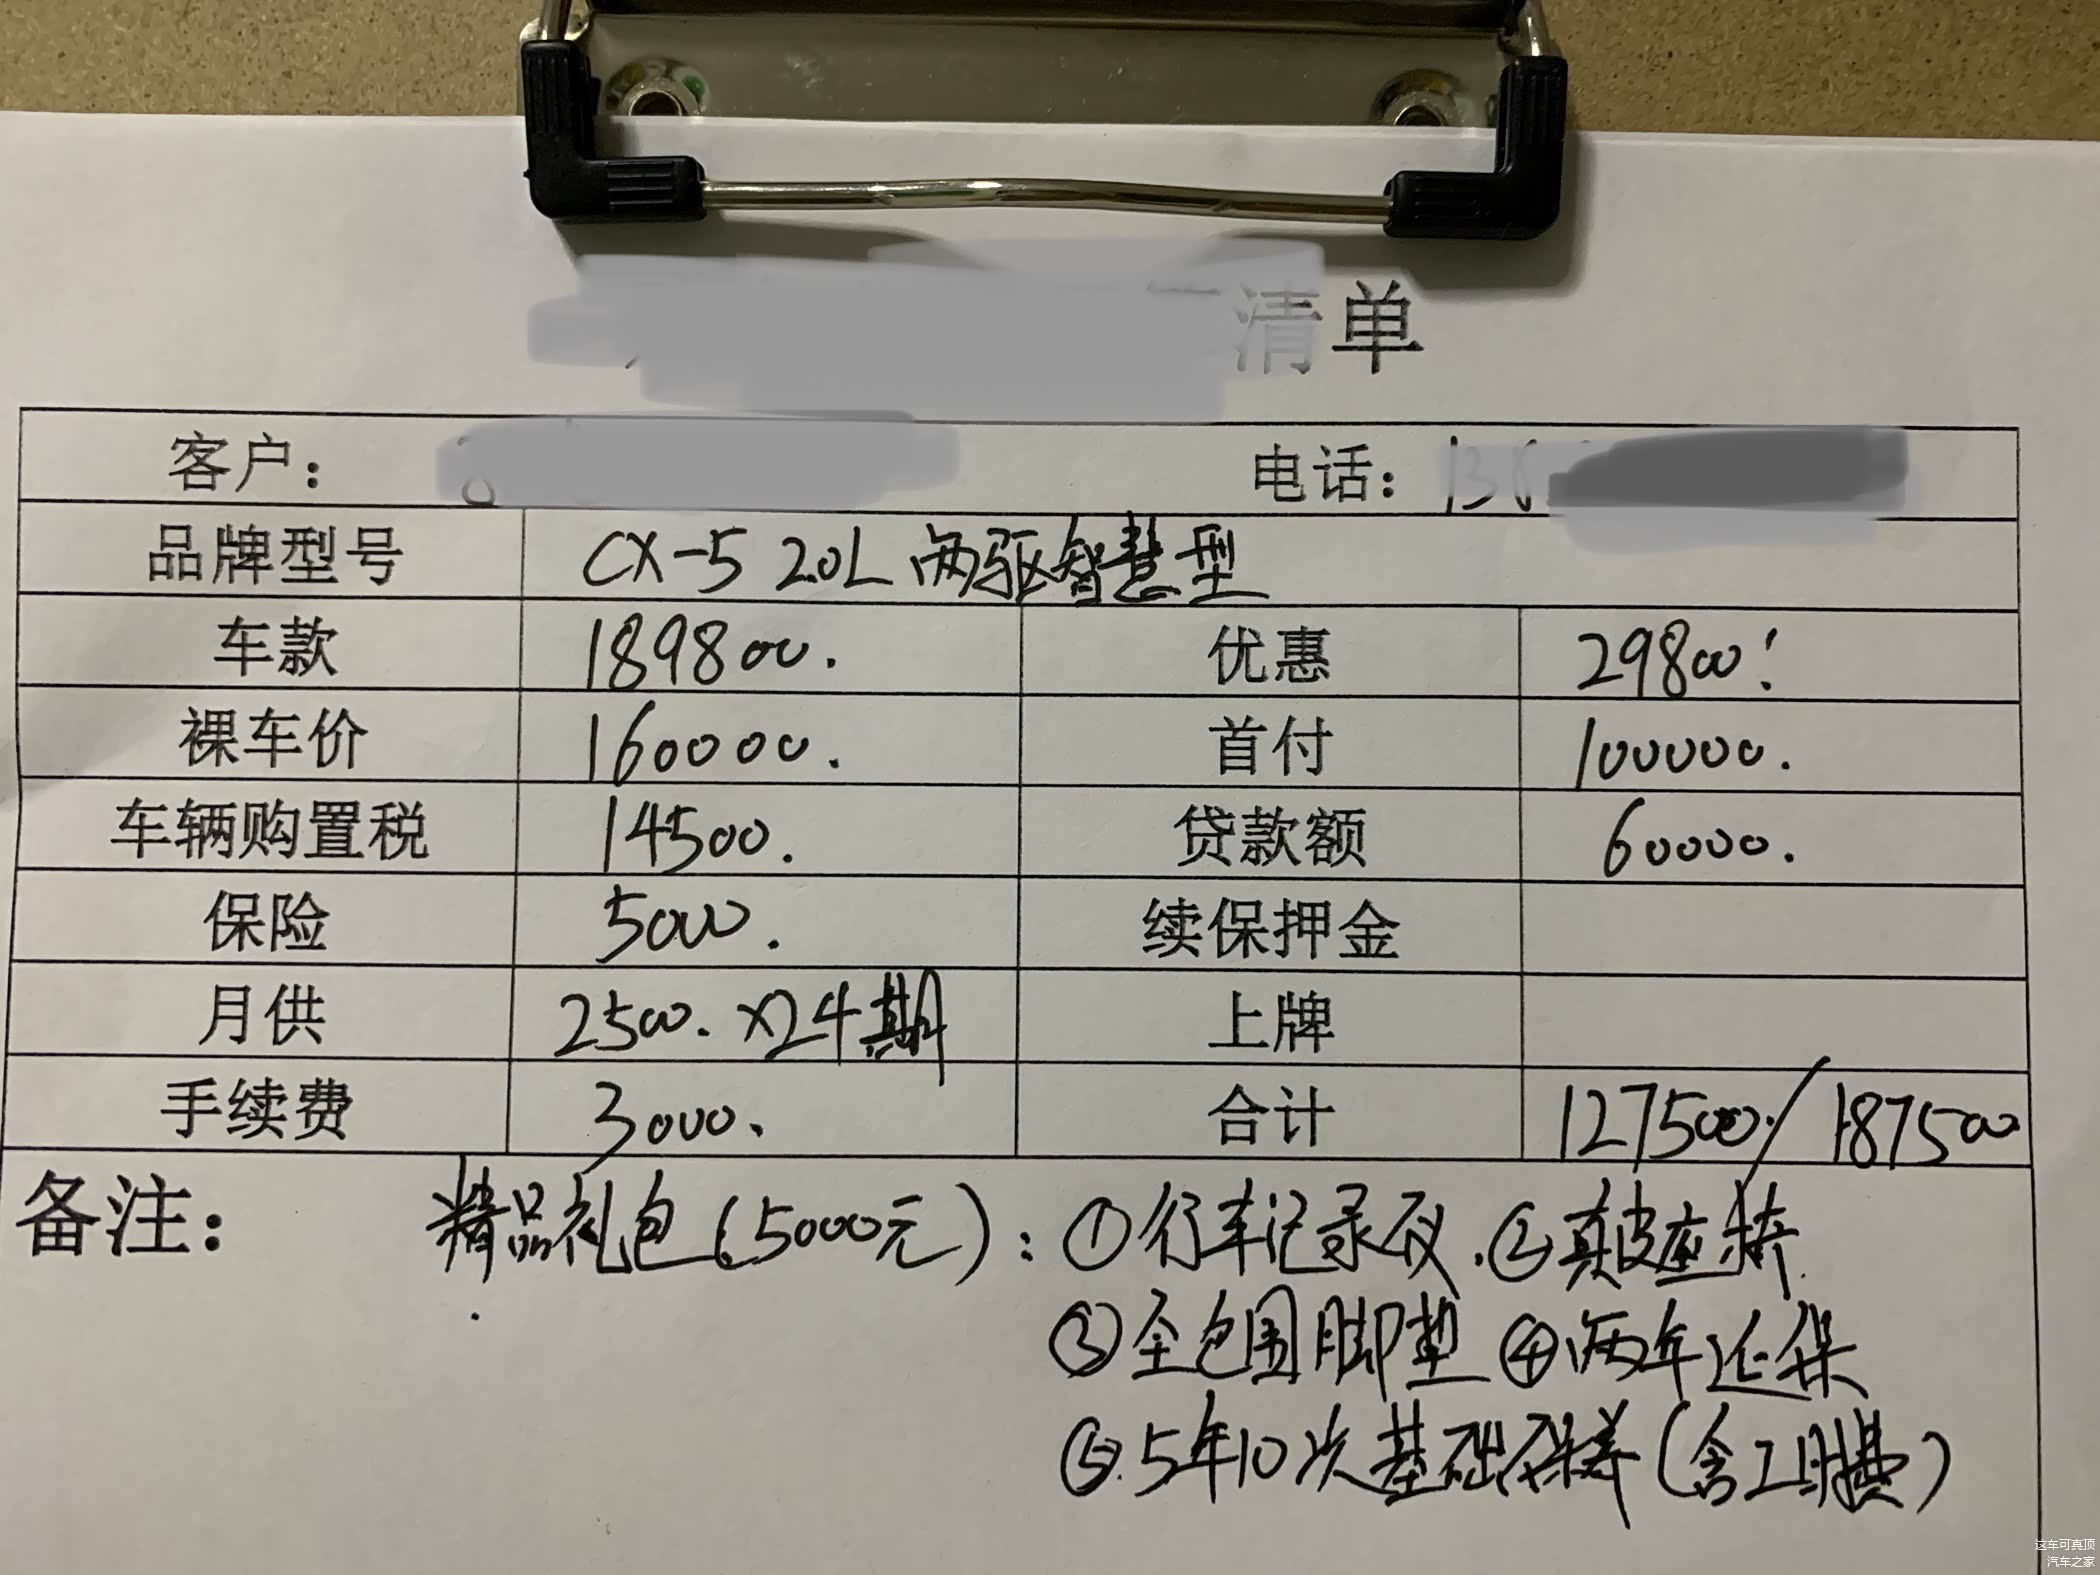 清单
客户： 电话：138
品牌型号 CX-5 2.0L 两驱智慧型
车款 189800. 优惠 29800!
裸车价 160000. 首付 100000.
车辆购置税 14500. 贷款额 60000.
保险 5000. 续保押金
月供 2500. ×24期 上牌
手续费 3000. 合计 127500./187500
备注： 精品礼包(5000元)：①行车记录仪.②真皮座椅
③全包围脚垫 ④两年延保
⑤.5年10次基础保养(含工时费)
这车可真顶
汽车之家